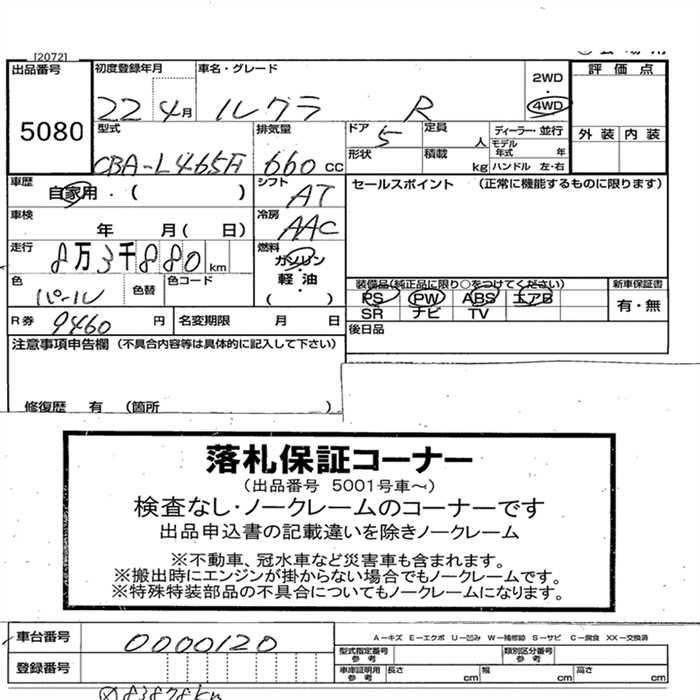 [2072]
出品番号
5080
初度登録年月
22 4月
車名・グレード
ルクラ R
2WD
・
4WD
評価点
外装 内装
型式
CBA-L465F
排気量
660 cc
ドア 5
形状
定員 人
積載 kg
ディーラー・並行
モデル年式 年
ハンドル 左・右
車歴
自家用・( )
シフト
AT
セールスポイント (正常に機能するものに限ります)
車検
年 月( 日)
冷房
AAC
走行
8万3千880km
燃料
ガソリン
・
軽油
( ・ )
色
パール
色替
色コード
装備品(純正品に限り○をつけてください)
PS PW ABS エアB
SR ナビ TV
新車保証書
有・無
R券 9460 円
名変期限 月 日
後日品
注意事項申告欄 (不具合内容等は具体的に記入して下さい)
修復歴 有 (箇所 )
落札保証コーナー
(出品番号 5001号車~)
検査なし・ノークレームのコーナーです
出品申込書の記載違いを除きノークレーム
※不動車、冠水車など災害車も含まれます。
※搬出時にエンジンが掛からない場合でもノークレームです。
※特殊特装部品の不具合についてもノークレームになります。
車台番号 0000120
登録番号
A-キズ E-エクボ U-凹み W-補修跡 S-サビ C-腐食 XX-交換済
型式指定番号
参考
類別区分番号
参考
車庫証明用
参考
長さ cm 幅 cm 高さ cm
83878km